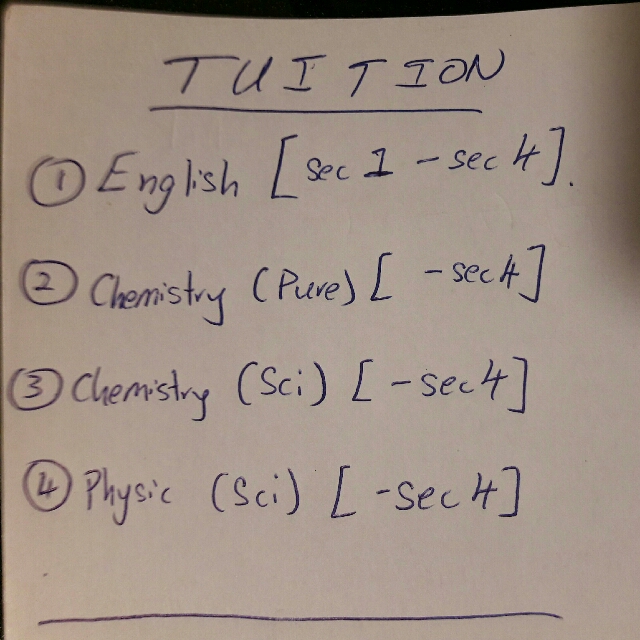 TUITION
① English [sec 1 - sec 4].
② Chemistry (Pure) [ - sec 4]
③ Chemistry (Sci) [ - sec 4]
④ Physic (Sci) [ - sec 4]